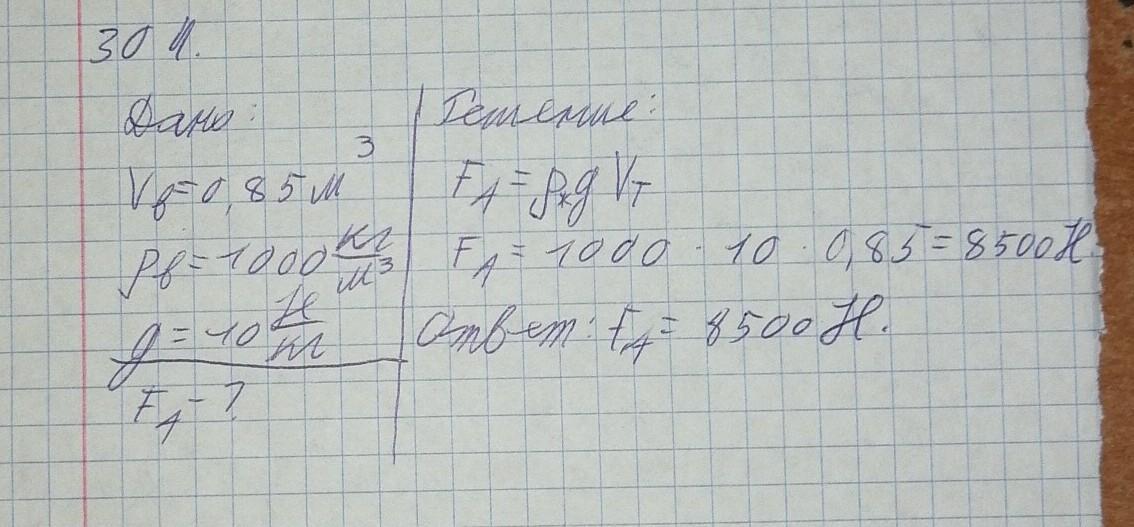 304.
Дано:
V_в=0,85 м³
ρ_в=1000 кг/м³
g=10 Н/кг
F_A-?
Решение:
F_A=ρ_ж g V_т
F_A=1000·10·0,85=8500 Н.
Ответ: F_A=8500 Н.